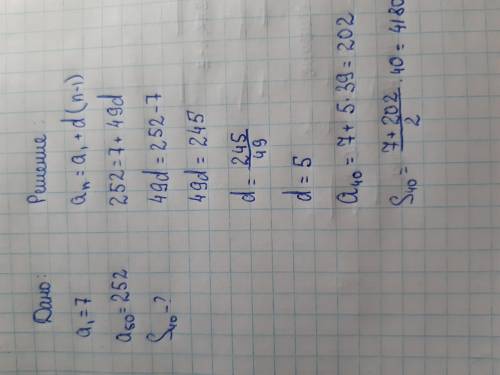 Дано:
a₁ = 7
a₅₀ = 252
S₄₀ - ?
Решение
aₙ = a₁ + d(n-1)
252 = 7 + 49d
49d = 252 - 7
49d = 245
d = 245/49
d = 5
a₄₀ = 7 + 5 · 39 = 202
S₄₀ = (7 + 202)/2 · 40 = 4180